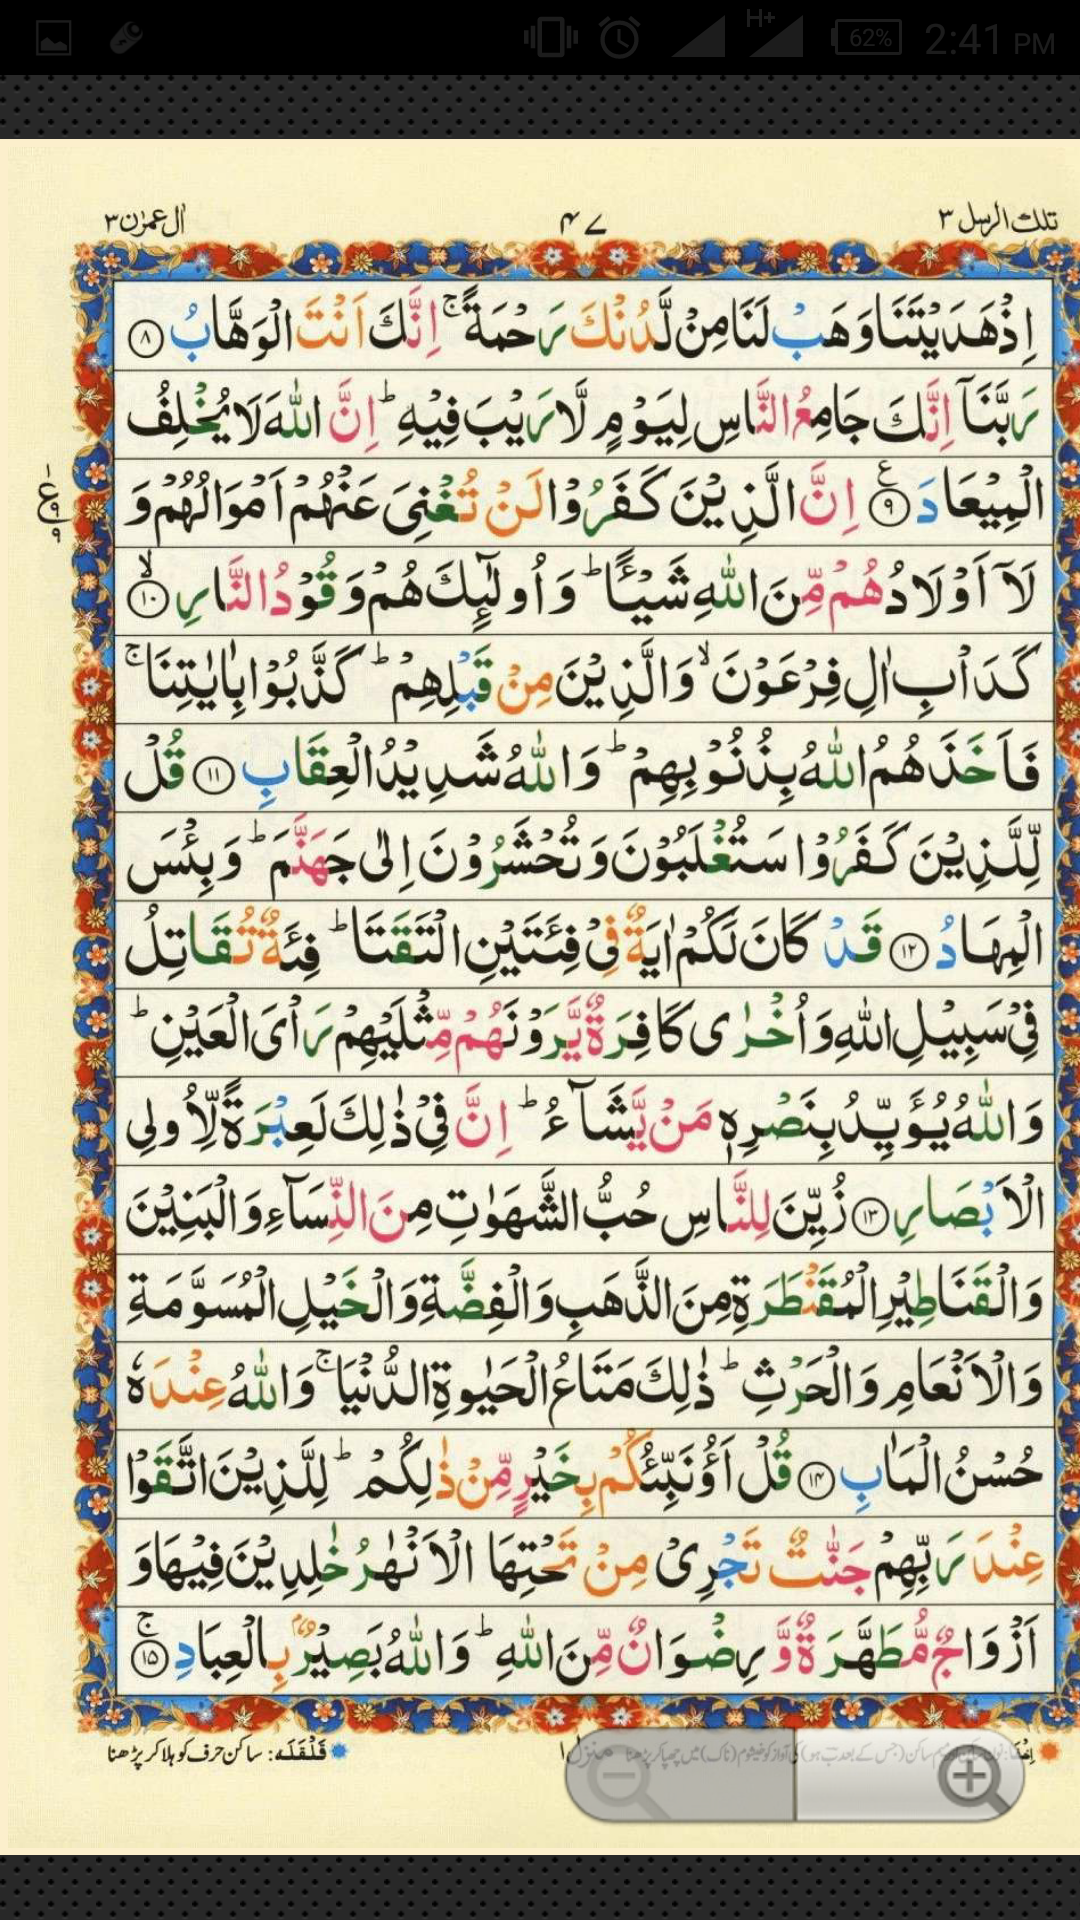 62% 2:41 PM
H+
تلك الرسل ٣
٤٧
اٰل عمرٰن ٣
اِذْ هَدَيْتَنَا وَهَبْ لَنَا مِنْ لَّدُنْكَ رَحْمَةً ۚ اِنَّكَ اَنْتَ الْوَهَّابُ ﴿٨﴾
رَبَّنَاۤ اِنَّكَ جَامِعُ النَّاسِ لِيَوْمٍ لَّا رَيْبَ فِيْهِ ؕ اِنَّ اللّٰهَ لَا يُخْلِفُ
الْمِيْعَادَ ﴿٩﴾ ع اِنَّ الَّذِيْنَ كَفَرُوْا لَنْ تُغْنِيَ عَنْهُمْ اَمْوَالُهُمْ وَ
ع ١ ٩ ٩
لَاۤ اَوْلَادُهُمْ مِّنَ اللّٰهِ شَيْـًٔا ؕ وَ اُولٰٓئِكَ هُمْ وَقُوْدُ النَّارِ ﴿١٠﴾ ۙ
كَدَاْبِ اٰلِ فِرْعَوْنَ ۙ وَالَّذِيْنَ مِنْ قَبْلِهِمْ ؕ كَذَّبُوْا بِاٰيٰتِنَا ۚ
فَاَخَذَهُمُ اللّٰهُ بِذُنُوْبِهِمْ ؕ وَ اللّٰهُ شَدِيْدُ الْعِقَابِ ﴿١١﴾ قُلْ
لِّلَّذِيْنَ كَفَرُوْا سَتُغْلَبُوْنَ وَ تُحْشَرُوْنَ اِلٰى جَهَنَّمَ ؕ وَ بِئْسَ
الْمِهَادُ ﴿١٢﴾ قَدْ كَانَ لَكُمْ اٰيَةٌ فِيْ فِئَتَيْنِ الْتَقَتَا ؕ فِئَةٌ تُقَاتِلُ
فِيْ سَبِيْلِ اللّٰهِ وَ اُخْرٰى كَافِرَةٌ يَّرَوْنَهُمْ مِّثْلَيْهِمْ رَاْيَ الْعَيْنِ ؕ
وَ اللّٰهُ يُؤَيِّدُ بِنَصْرِهٖ مَنْ يَّشَآءُ ؕ اِنَّ فِيْ ذٰلِكَ لَعِبْرَةً لِّاُولِي
الْاَبْصَارِ ﴿١٣﴾ زُيِّنَ لِلنَّاسِ حُبُّ الشَّهَوٰتِ مِنَ النِّسَآءِ وَ الْبَنِيْنَ
وَ الْقَنَاطِيْرِ الْمُقَنْطَرَةِ مِنَ الذَّهَبِ وَ الْفِضَّةِ وَ الْخَيْلِ الْمُسَوَّمَةِ
وَ الْاَنْعَامِ وَ الْحَرْثِ ؕ ذٰلِكَ مَتَاعُ الْحَيٰوةِ الدُّنْيَا ۚ وَ اللّٰهُ عِنْدَهٗ
حُسْنُ الْمَاٰبِ ﴿١٤﴾ قُلْ اَؤُنَبِّئُكُمْ بِخَيْرٍ مِّنْ ذٰلِكُمْ ؕ لِلَّذِيْنَ اتَّقَوْا
عِنْدَ رَبِّهِمْ جَنّٰتٌ تَجْرِيْ مِنْ تَحْتِهَا الْاَنْهٰرُ خٰلِدِيْنَ فِيْهَا وَ
اَزْوَاجٌ مُّطَهَّرَةٌ وَّ رِضْوَانٌ مِّنَ اللّٰهِ ؕ وَ اللّٰهُ بَصِيْرٌۢ بِالْعِبَادِ ﴿١٥﴾ ۚ
ساکن (جس کے بعد ب ہو) کی آواز کو خیشوم (ناک) میں چھپا کر پڑھنا
منزل ١
قَلْقَلَه: ساکن حرف کو ہلا کر پڑھنا